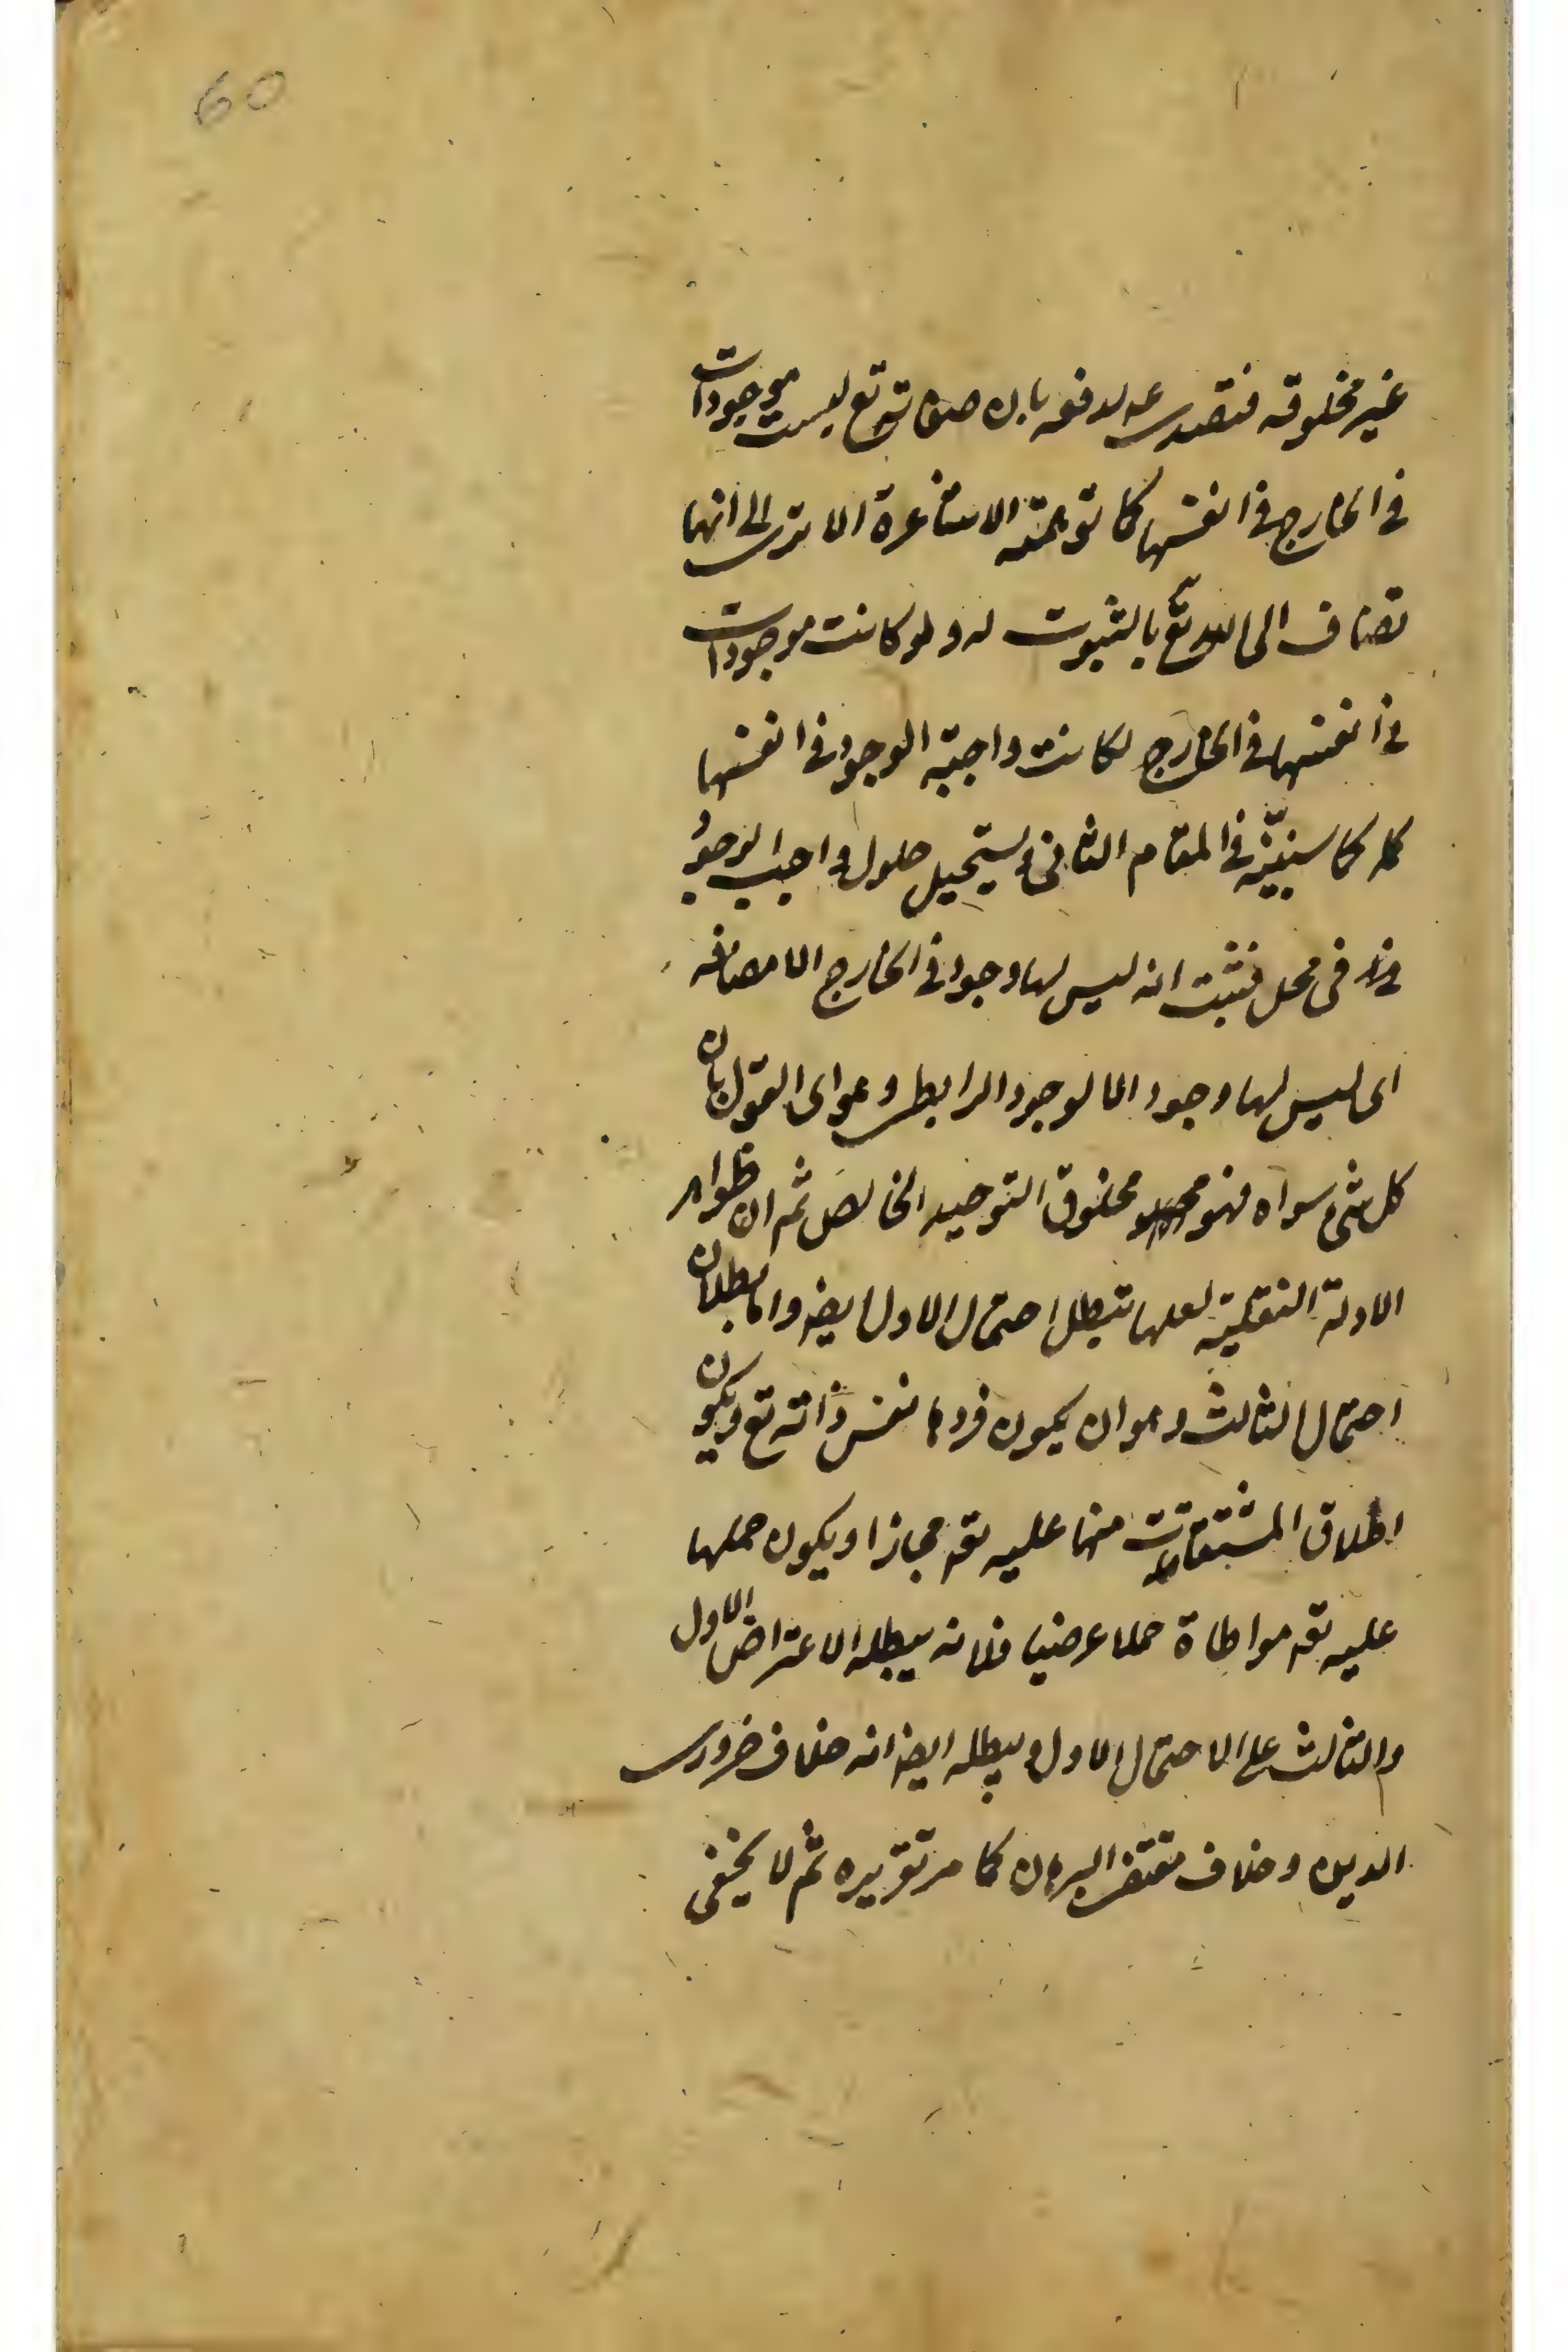 60
غير مخلوقه فتصدى لدفعه بان صفاته تع ليست موجودات
فى الخارج فى انفسها كما توهمته الاشاعرة الا ترى الى انها
تضاف الى الله تع بالثبوت له ولو كانت موجودات
فى انفسها فى الخارج لكانت واجبة الوجود فى انفسها
كما سنبينه فى المقام الثانى ويستحيل حلول واجب الوجود
فى محل فثبت انه ليس لها وجود فى الخارج الا مضافه
اى ليس لها وجود الا الوجود الرابطى وهو اى القول بان
كل شئ سواه فهو مخلوق التوحيد الخالص ثم ان ظواهر
الادلة النقلية لعلها تبطل احتمال الاول ايضا واما بطلان
احتمال الثالث وهو ان يكون فردها نفس ذاته تع ويكون
اطلاق المشتقات منها عليه تعه مجازا ويكون حملها
عليه تعه مواطاة حملا عرضيا فلانه يبطله الاعتراض الاول
والثالث على الاحتمال الاول ويبطله ايضا انه خلاف ضرورى
الدين وخلاف مقتضى البرهان كما مر تقريره ثم لا يخفى